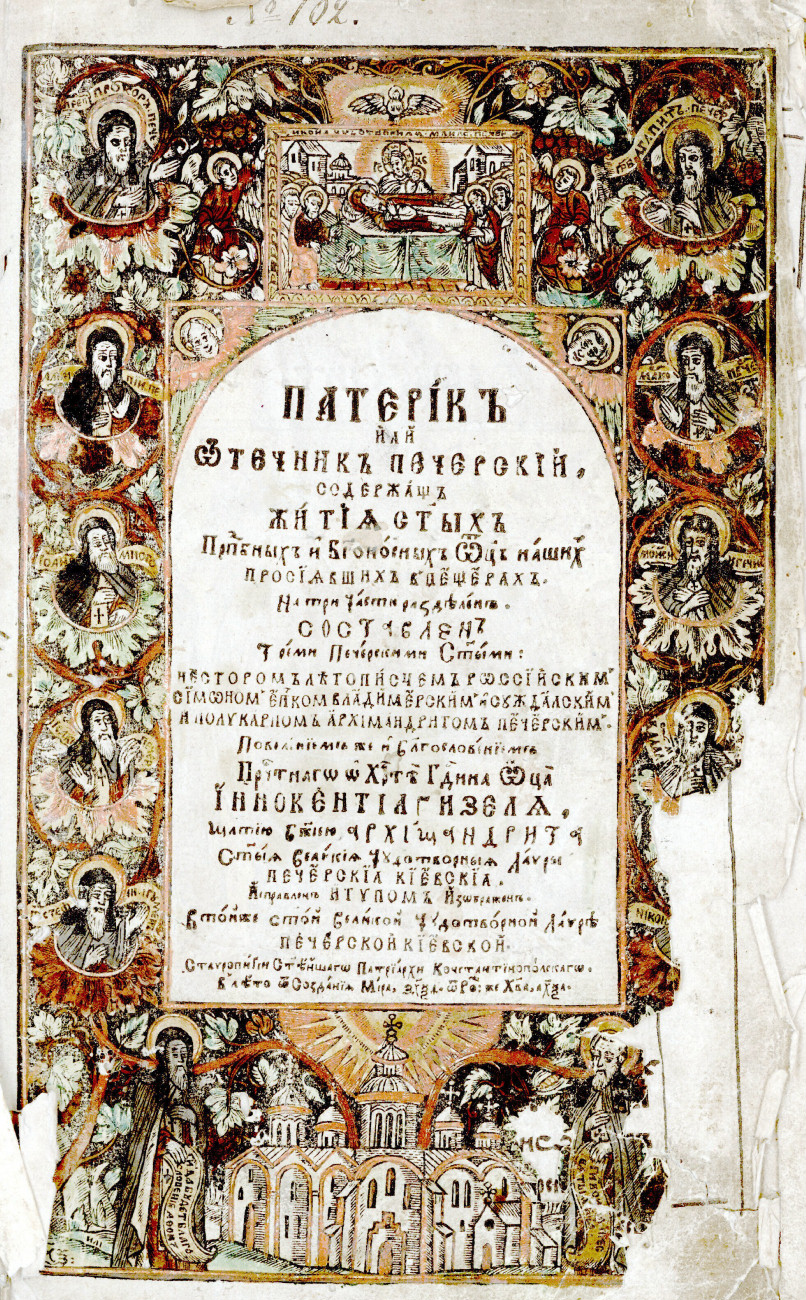 № 102.
ПАТЕРІ́КЪ
И҆лѝ
Ѿте́чникъ Пече́рскїй,
содержа́щъ
Житїѧ̀ ст҃ы́хъ
Прⷣпбныхъ и҆ Бг҃оно́сныхъ Ѻ҆ц҃ъ на́шихъ
просїѧ́вшихъ в̾ пеще́рахъ.
На три ча́сти раздѣле́нъ.
Соста́вленъ
Треми̇̀ Пече́рскими Ст҃ы́ми:
Не́сторомъ лѣтопи́сцемъ Рѡссі́йскимъ
Сі́мѡномъ Е҆пⷭ҇комъ Влади́мерскимъ и҆ Су́ждалскимъ
и҆ Полука́рпомъ А҆рхїмандри́томъ Пече́рскимъ.
Повелѣ́нїемъ же и҆ бл҃гослове́нїемъ
Прⷱ҇тнагѡ ѡ҆ Хрⷭ҇тѣ̀ Гдⷭ҇и́на Ѻ҆ц҃а̀
І҆нноке́нтїа Гизе́лѧ,
Млⷭ҇тїю Бж҃їею, А҆рхїмандри́та
Ст҃ы́ѧ Вели́кїѧ Чудотво́рныѧ Ла́ѵры
Пече́рскїѧ Кі́евскїѧ.
И҆спра́вленъ и҆ ту́помъ и҆з̾ѡбраже́нъ.
В̾ то́йже ст҃о́й вели́кой чудотво́рной Ла́ѵрѣ
Пече́рской Кі́евской.
Стаѵропи́гїи Ст҃ѣ́йшагѡ Патрїа́рхи Кѡнстантїно́полскагѡ.
В̾ лѣ́то ѿ Созда́нїѧ Мі́ра, ҂зр҃ѯ҃ѳ. ѿ Рожⷣ: же Хв҃а, ҂ах҃ѯ҃а.
НИКОН